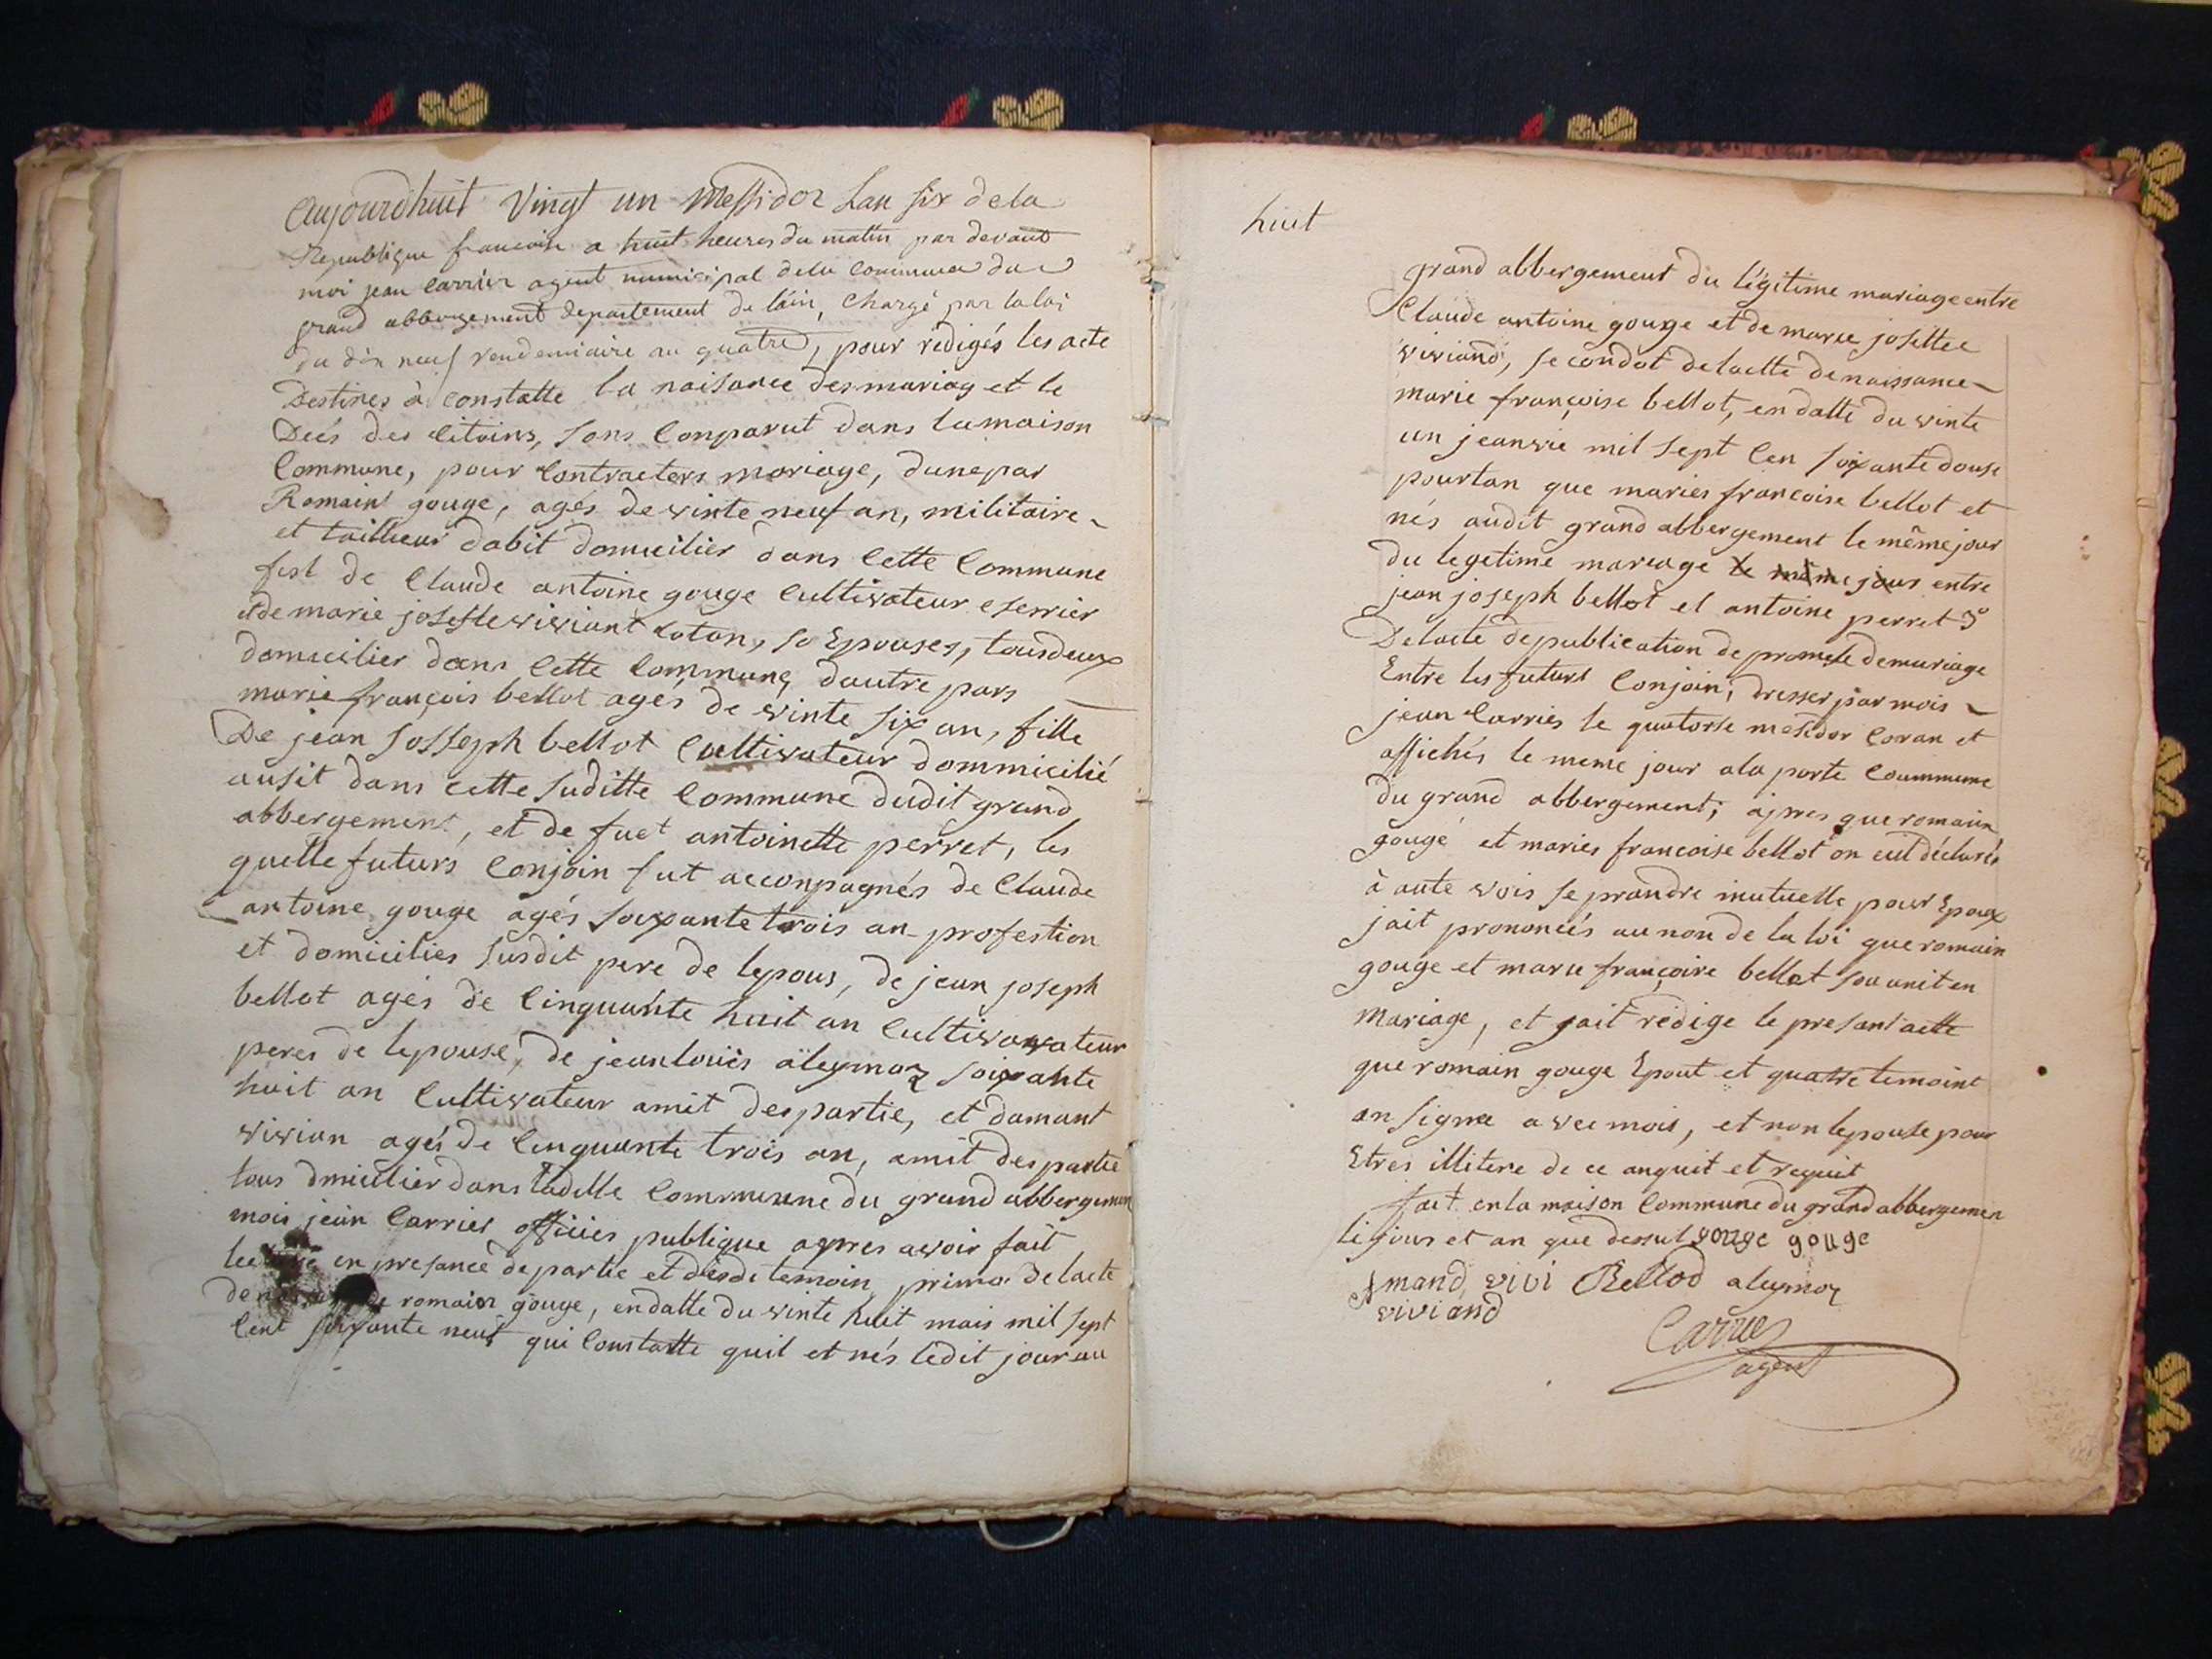 Aujourdhuit Vingt un Messidor Lan six dela
Republique francoise a huit heures du matin par devant
moi jean Carrier agent municipal dela Commune du
grand abbergement departement de lain, Chargé par la loi
du dix neuf vendemiaire an quatre, pour rédigés les acte
Destines à constatte la naisance des mariag et le
Decés des citoins, sons Conparut dans la maison
Commune, pour Contracters mariage, dune par
Romaint gouge, agés de vinte neuf an, militaire
et tailleur dabit domicilier dans cette Commune
fist de Claude antoine gouge Cultivateur eserrier
et de marie joseste viviant laton, sa Epouses, tous deux
domicilier dans Cette Commune, dautre pars
marie françois bellot agés de vinte six an, fille
De jean josseph bellot Cultivateur dommicilié
ausit dans cette suditte Commune dudit grand
abbergement, et de fuet antoinette perret, les
quelle futurs Conjoin fut acconpagnés de Claude
antoine gouge agés soixante trois an profestion
et domicilies susdit pere de lepous, de jean joseph
bellot agés de Cinquante huit an Cultivavateur
peres de lepouse, de jean louïs aleymoz soixante
huit an Cultivateur amit des partie, et damant
vivian agés de Cinquante trois an, amit des partie
tous dmicilier dans ladille Commune du grand abbergemen
mois jean Carrier officies publique apres avoir fait
en presance de partie et desdi temoin, primo De lacte
de romain gouge, en datte du vinte huit mais mil sept
Cent soixante neuf qui Constatte quil et nés ledit jour au
huit
grand abbergement du légitime mariage entre
Claude antoine gouge et de marie josette
viviand, secondot de lactte de naissance
marie françoise bellot, en datte du vinte
un jeanvie mil sept Cen soixante douse
pourtan que maries francoise bellot et
nés audit grand abbergement le même jour
du legetime mareage le même jour entre
jean joseph bellot et antoine perret 3°
De lacte de publication de promese de mariage
Entre les futurs Conjoin, dresser par mois
jean Carries le quatorse mesidor Coran et
affichés le meme jour ala porte Coummune
du grand abbergement; apres que romain
gouge et maries francoise bellot on eut déclarés
à aute vois se prandre mutuelle pour Epoux
jait prononciés au non de la loi que romain
gouge et marie françoire bellot sou unit en
Mariage, et jait rédige le presant actte
que romain gouge Epout et quatre temoint
on signe avec mois, et non lepouse pour
Etres illitere de ce anquit et requit
fait en la maison Commune du grand abbergemen
le jour et an que dessut gouge gouge
Amand vivi Bellod aleymoz
viviand
Carrier
agent